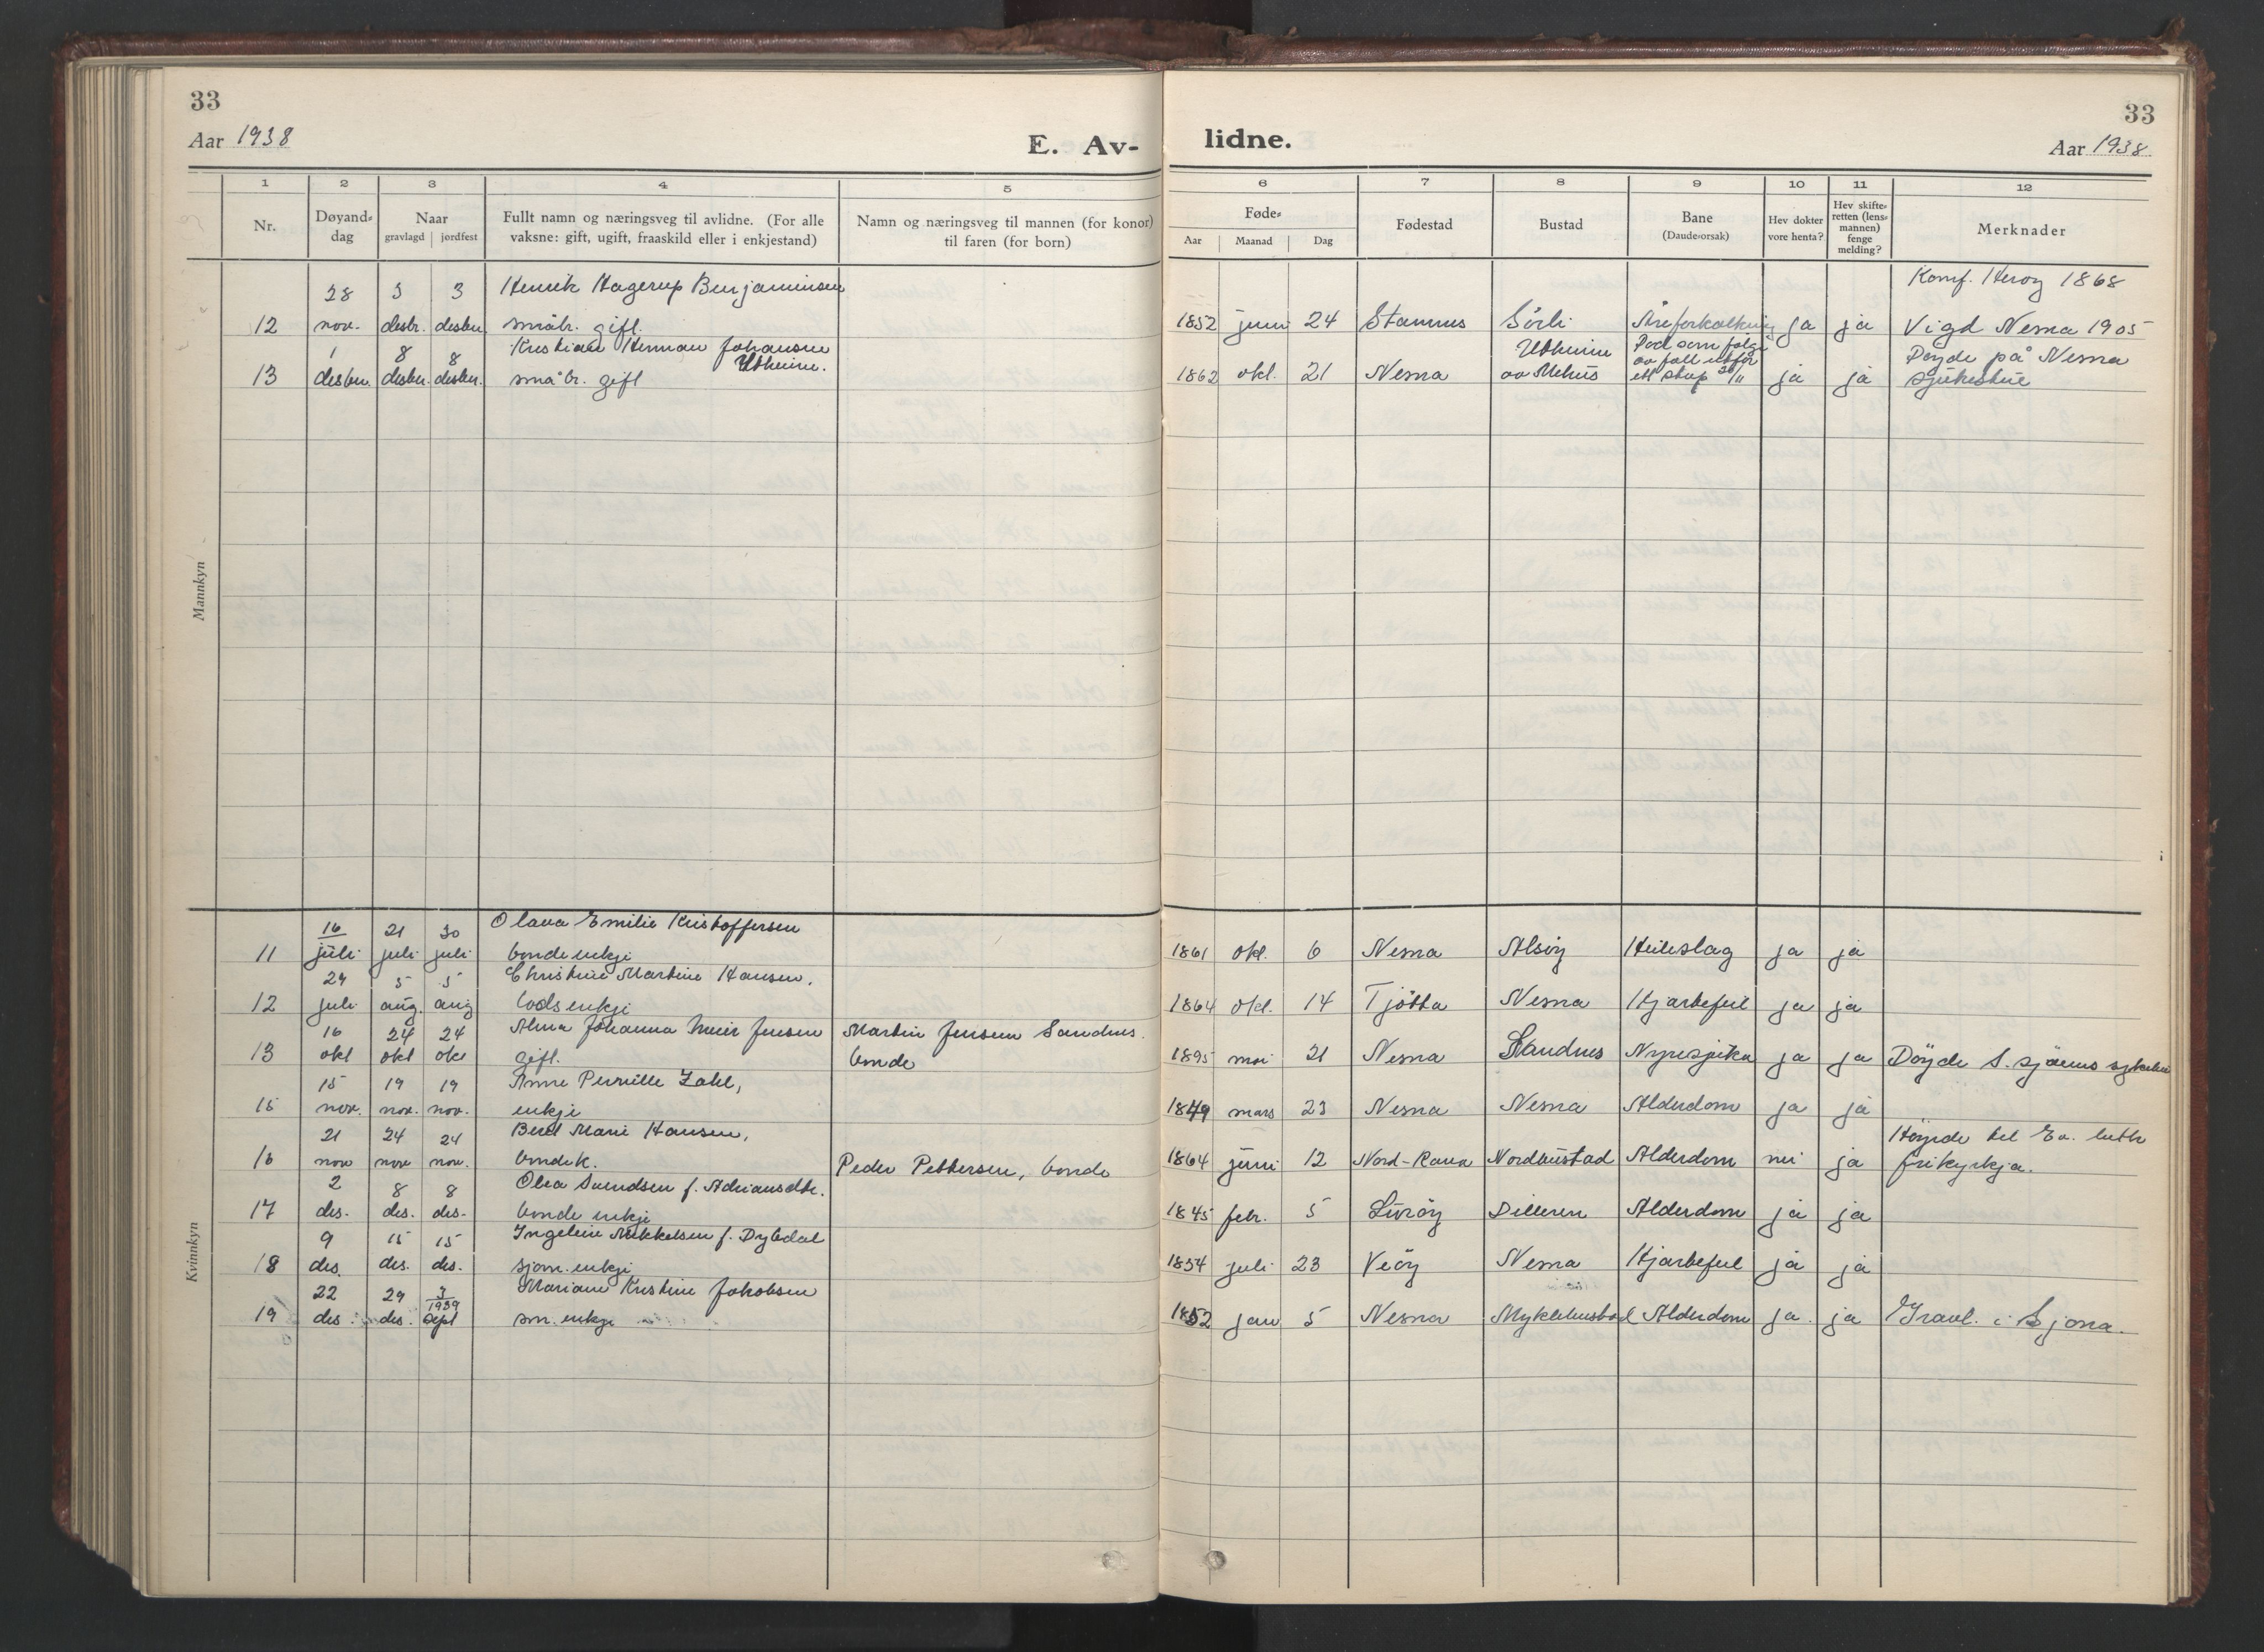 33
Aar 1938
E. Av-
1 2 3 4 5
Nr. Døyand-dag Naar gravlagd | jordfest Fullt namn og næringsveg til avlidne. (For alle vaksne: gift, ugift, fraaskild eller i enkjestand) Namn og næringsveg til mannen (for konor) til faren (for born)
Mannkyn
28 3 3 Henrik Hagerup Benjaminsen
12 nov. desbr. desbr. småbr. gift.
1 8 8 Kristian Herman Johansen
Utheim.
13 desbr. desbr. desbr. småbr. gift
Kvinnkyn
16 21 30 Olava Emilie Kristoffersen
11 juli juli juli bondeenkje
29 5 5 Christine Martine Hansen,
12 juli aug. aug lodsenkje
16 24 24 Alma Johanna Jensen Martin Jensen Sandnes.
13 okt okt okt gift. bonde
15 19 19 Anne Pernille Zahl,
15 nov. nov. nov. enkje
21 24 24 Beret Marie Hansen,
16 nov nov nov. bondek. Peder Pettersen, bonde
2 8 8 Olea Svendsen f. Adriansdtr.
17 des. des. des. bonde enkje
9 15 15 Ingeleie Mikkelsen f. Dybdal
18 des. des. des. sjøm. enkje
22 29 3 Mariane Kristine Jakobsen
1939
19 des. des. Sept sm. enkje
33
lidne.
Aar 1938
6 7 8 9 10 11 12
Føde- Aar | Maanad | Dag Fødestad Bustad Bane (Daude-orsak) Hev dokter vore henta? Hev skifte-retten (lens-mannen) fenge melding? Merknader
Konf. Herøy 1868
1852 juni 24 Stamnes Sörli Åreforkalkning ja ja Vigd Nesna 1905
Utheim Död som følge
av fall utfor Döyde på Nesna
1862 okt. 21 Nesna av Mehus ett stup 26/11 ja ja sjukestue
1861 okt. 6 Nesna Alsöy Heileslag ja ja
1864 okt. 14 Tjötta Nesna Hjartefeil ja ja
1895 mai 21 Nesna Sandnes Nyresjuka ja ja Döyde S. sjöens sykehus
1849 mars 23 Nesna Nesna Alderdom ja ja
Höyrde til Ev. luth
1864 juni 12 Nord-Rana Nordbustad Alderdom nei ja frikyrkja.
1845 febr. 5 Luröy Dilleren Alderdom ja ja
1854 juli 23 Veöy Nesna Hjartefeil ja ja
1852 jan 5 Nesna Myklebustad Alderdom ja. ja Gravl. i Sjona.